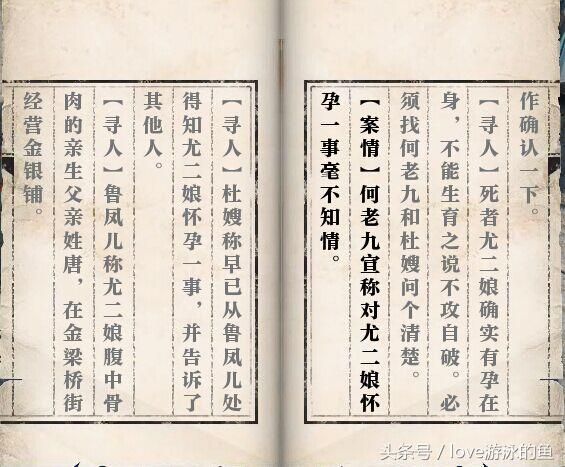 作确认一下。
【寻人】死者尤二娘确实有孕在
身，不能生育之说不攻自破。必
须找何老九和杜嫂问个清楚。
【案情】何老九宣称对尤二娘怀
孕一事毫不知情。
【寻人】杜嫂称早已从鲁凤儿处
得知尤二娘怀孕一事，并告诉了
其他人。
【寻人】鲁凤儿称尤二娘腹中骨
肉的亲生父亲姓唐，在金梁桥街
经营金银铺。
头条号／love游泳的鱼